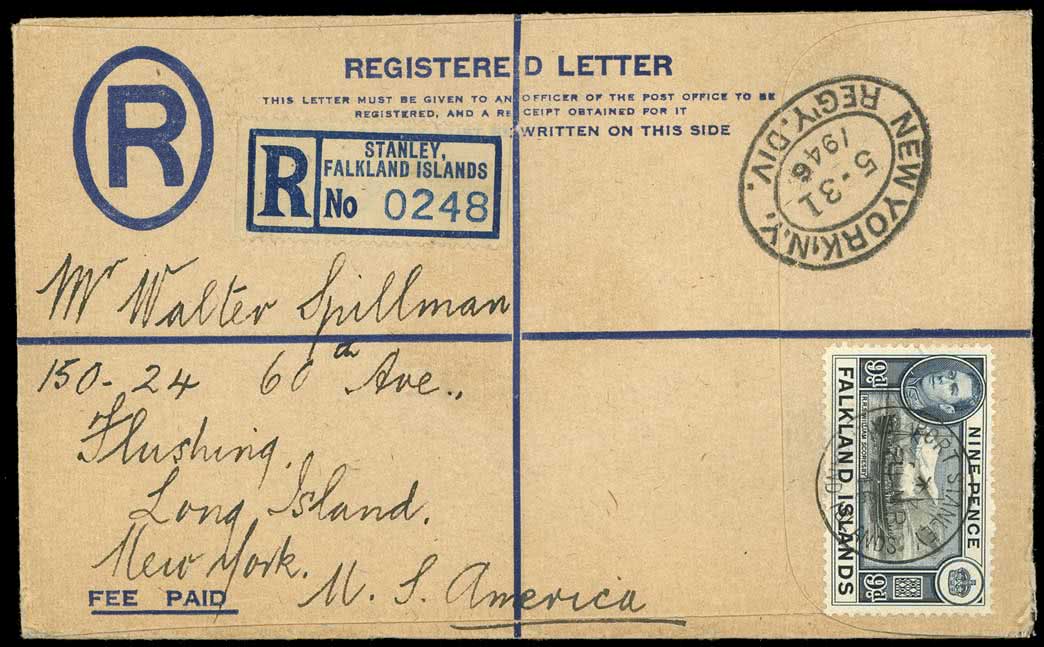 R
REGISTERED LETTER
THIS LETTER MUST BE GIVEN TO AN OFFICER OF THE POST OFFICE TO BE
REGISTERED, AND A RECEIPT OBTAINED FOR IT
WRITTEN ON THIS SIDE
R
STANLEY,
FALKLAND ISLANDS
No 0248
NEW YORK, N.Y.
REG'Y. DIV.
5-31
1946
Mr Walter Spillman
150-24 60th Ave.,
Flushing.
Long Island.
New York.
U. S. America
FEE PAID
NINE PENCE
9d
9d
FALKLAND ISLANDS
R.R.S. WILLIAM SCORESBY
PORT STANLEY